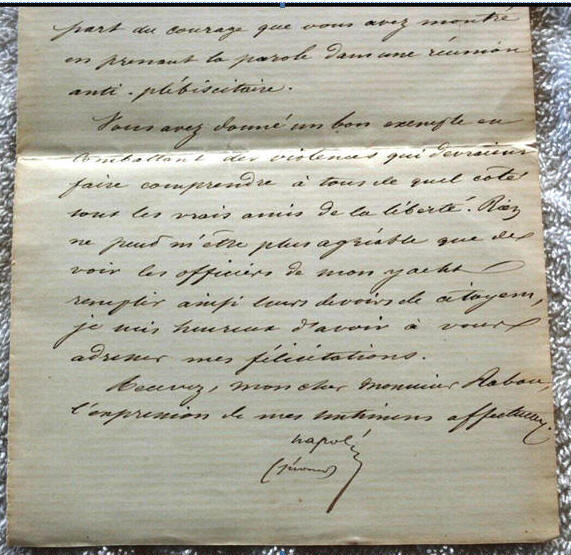 part du courage que vous avez montré
en prenant la parole dans une réunion
anti-plébiscitaire.
Vous avez donné un bon exemple en
combattant des violences qui devraient
faire comprendre à tous de quel côté
sont les vrais amis de la liberté. Rien
ne peut m'être plus agréable que de
voir les officiers de mon yacht
remplir ainsi leurs devoirs de citoyens,
je suis heureux d'avoir à vous
adresser mes félicitations.
Recevez, mon cher Monsieur Rabou,
l'expression de mes sentiments affectueux.
Napoléon
(Jérôme)